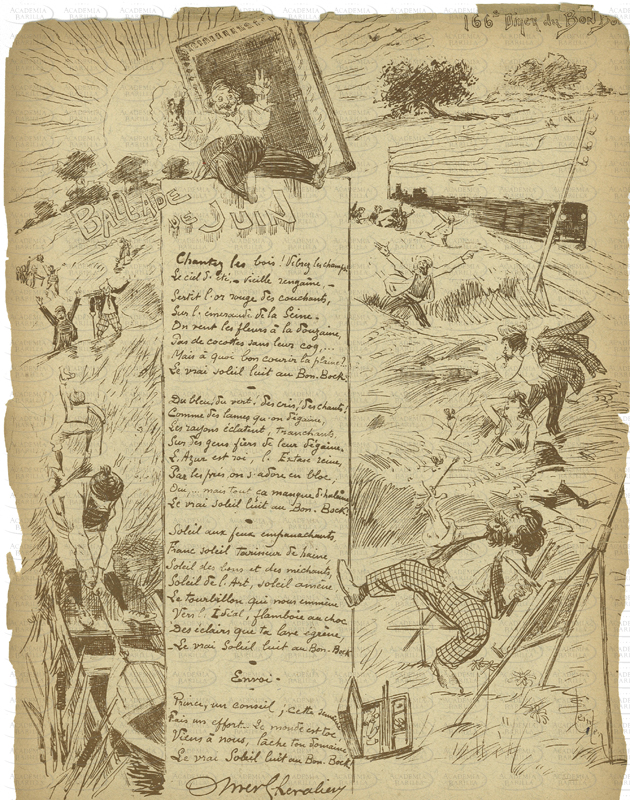 166e Diner du Bon Bock
BALLADE
DE JUIN
Chantez les bois! Vibrez les champs!
Le ciel d'été, – vieille rengaine, –
Sertit l'or rouge des couchants,
Sur l'émeraude de la Seine.
On vend les fleurs à la douzaine,
Pas de cocottes sans leur coq...
Mais à quoi bon courir la plaine?
Le vrai soleil luit au Bon-Bock.
Du bleu, du vert! des cris! des chants!
Comme des lames qu'on dégaine,
Les rayons éclatent, tranchants,
Sur des gens fiers de leur dégaine.
L'Azur est roi, l'Extase reine,
Par les prés on s'adore en bloc,
Oui,... mais tout ça manque d'haleine
Le vrai Soleil luit au Bon-Bock!
Soleil aux feux empanachants,
Franc soleil tarisseur de haine,
Soleil des bons et des méchants,
Soleil de l'Art, soleil amène
Le tourbillon qui nous emmène
Vers l'Idéal, flamboie au choc
Des éclairs que ta lave égrène,
Le vrai Soleil luit au Bon-Bock
Envoi-
Prince, un conseil; cette
Fais un effort... Le monde est toc
Viens à nous, lâche ton domaine
Le vrai Soleil luit au Bon-Bock.
Omer Chevalier
ACADEMIA
BARILLA